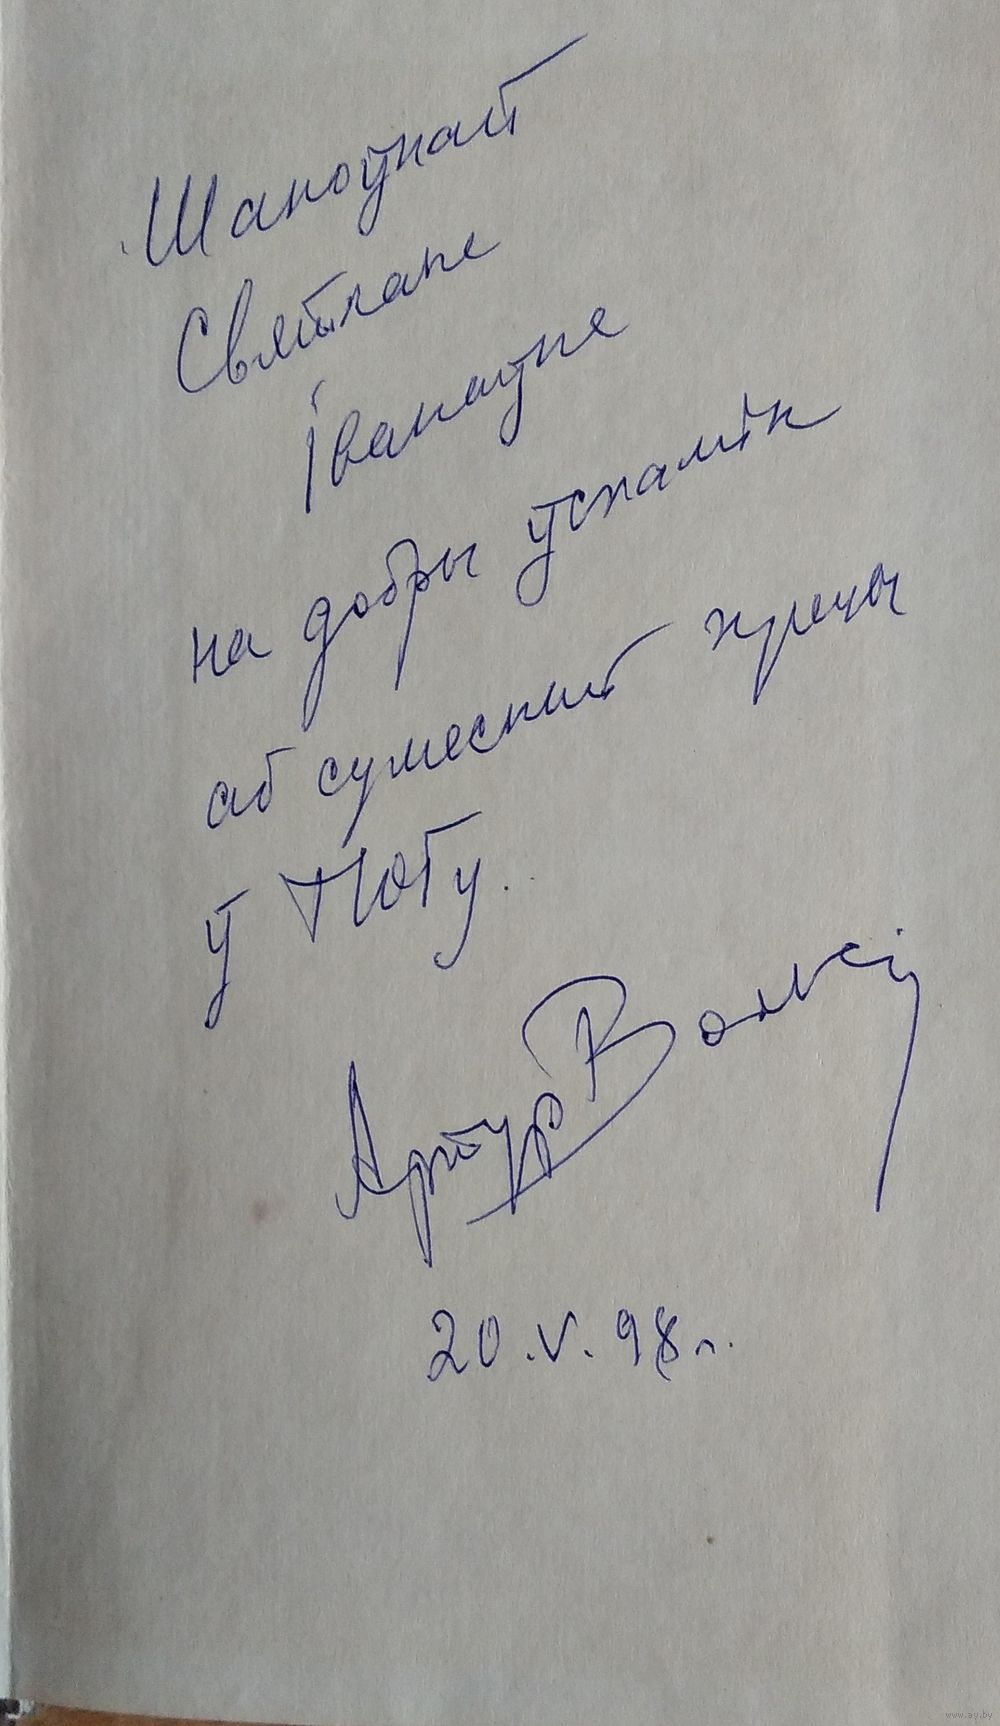 Шаноўнай
Святлане
Іванаўне
на добры ўспамін
аб сумеснай
ў
Артур Вольскі
20.V.98 г.
www.ay.by